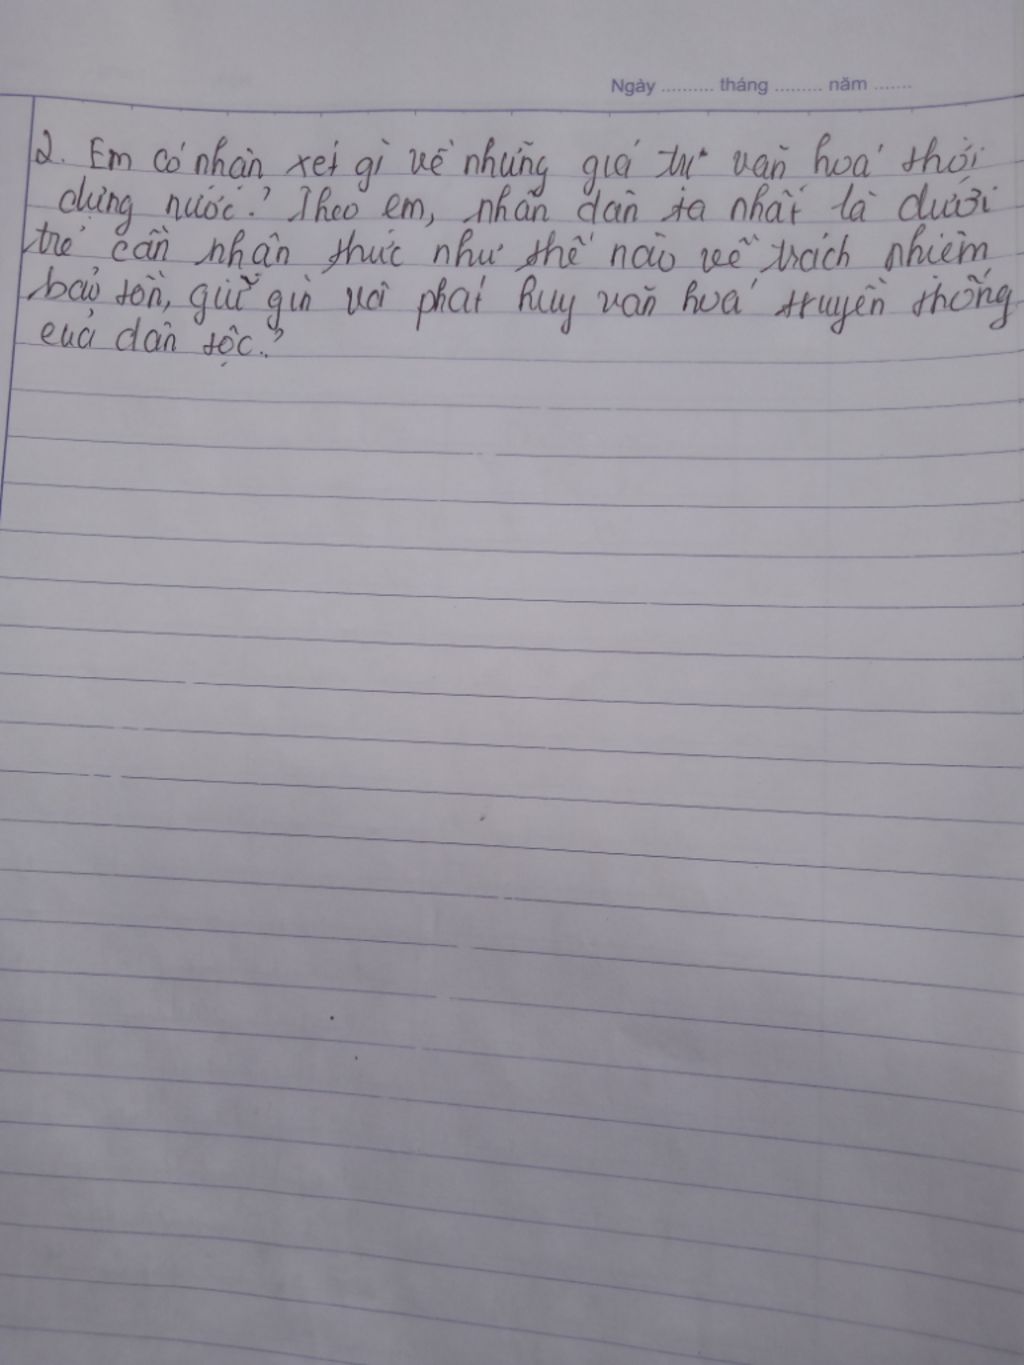 Ngày .......... tháng ......... năm .......
2. Em có nhận xét gì về những giá trị văn hoá thời
dựng nước? Theo em, nhân dân ta nhất là dưới
trẻ cần nhận thức như thế nào về trách nhiệm
bảo tồn, giữ gìn và phát huy văn hoá truyền thống
của dân tộc?